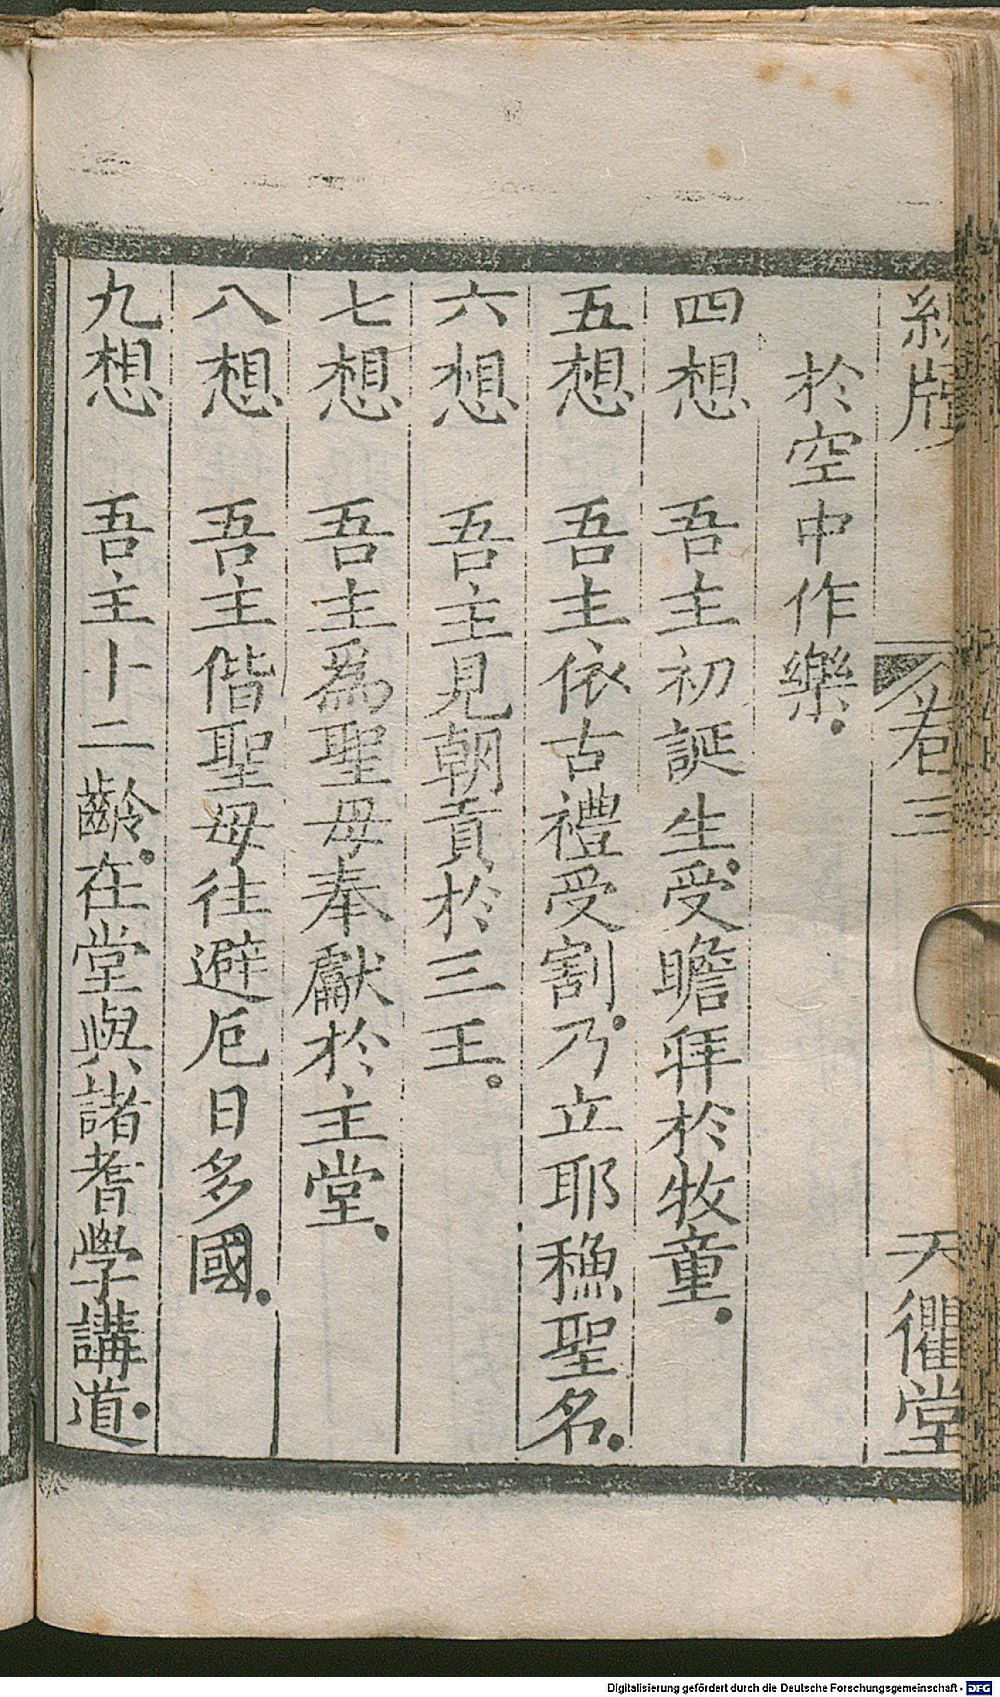 總牘 卷三 天衢堂
於空中作樂.
四想 吾主初誕生.受瞻拜於牧童.
五想 吾主依古禮受割.乃立耶穌聖名.
六想 吾主見朝貢於三王.
七想 吾主爲聖母奉獻於主堂.
八想 吾主偕聖母往避厄日多國.
九想 吾主十二齡.在堂與諸耆學講道.
Digitalisierung gefördert durch die Deutsche Forschungsgemeinschaft - DFG